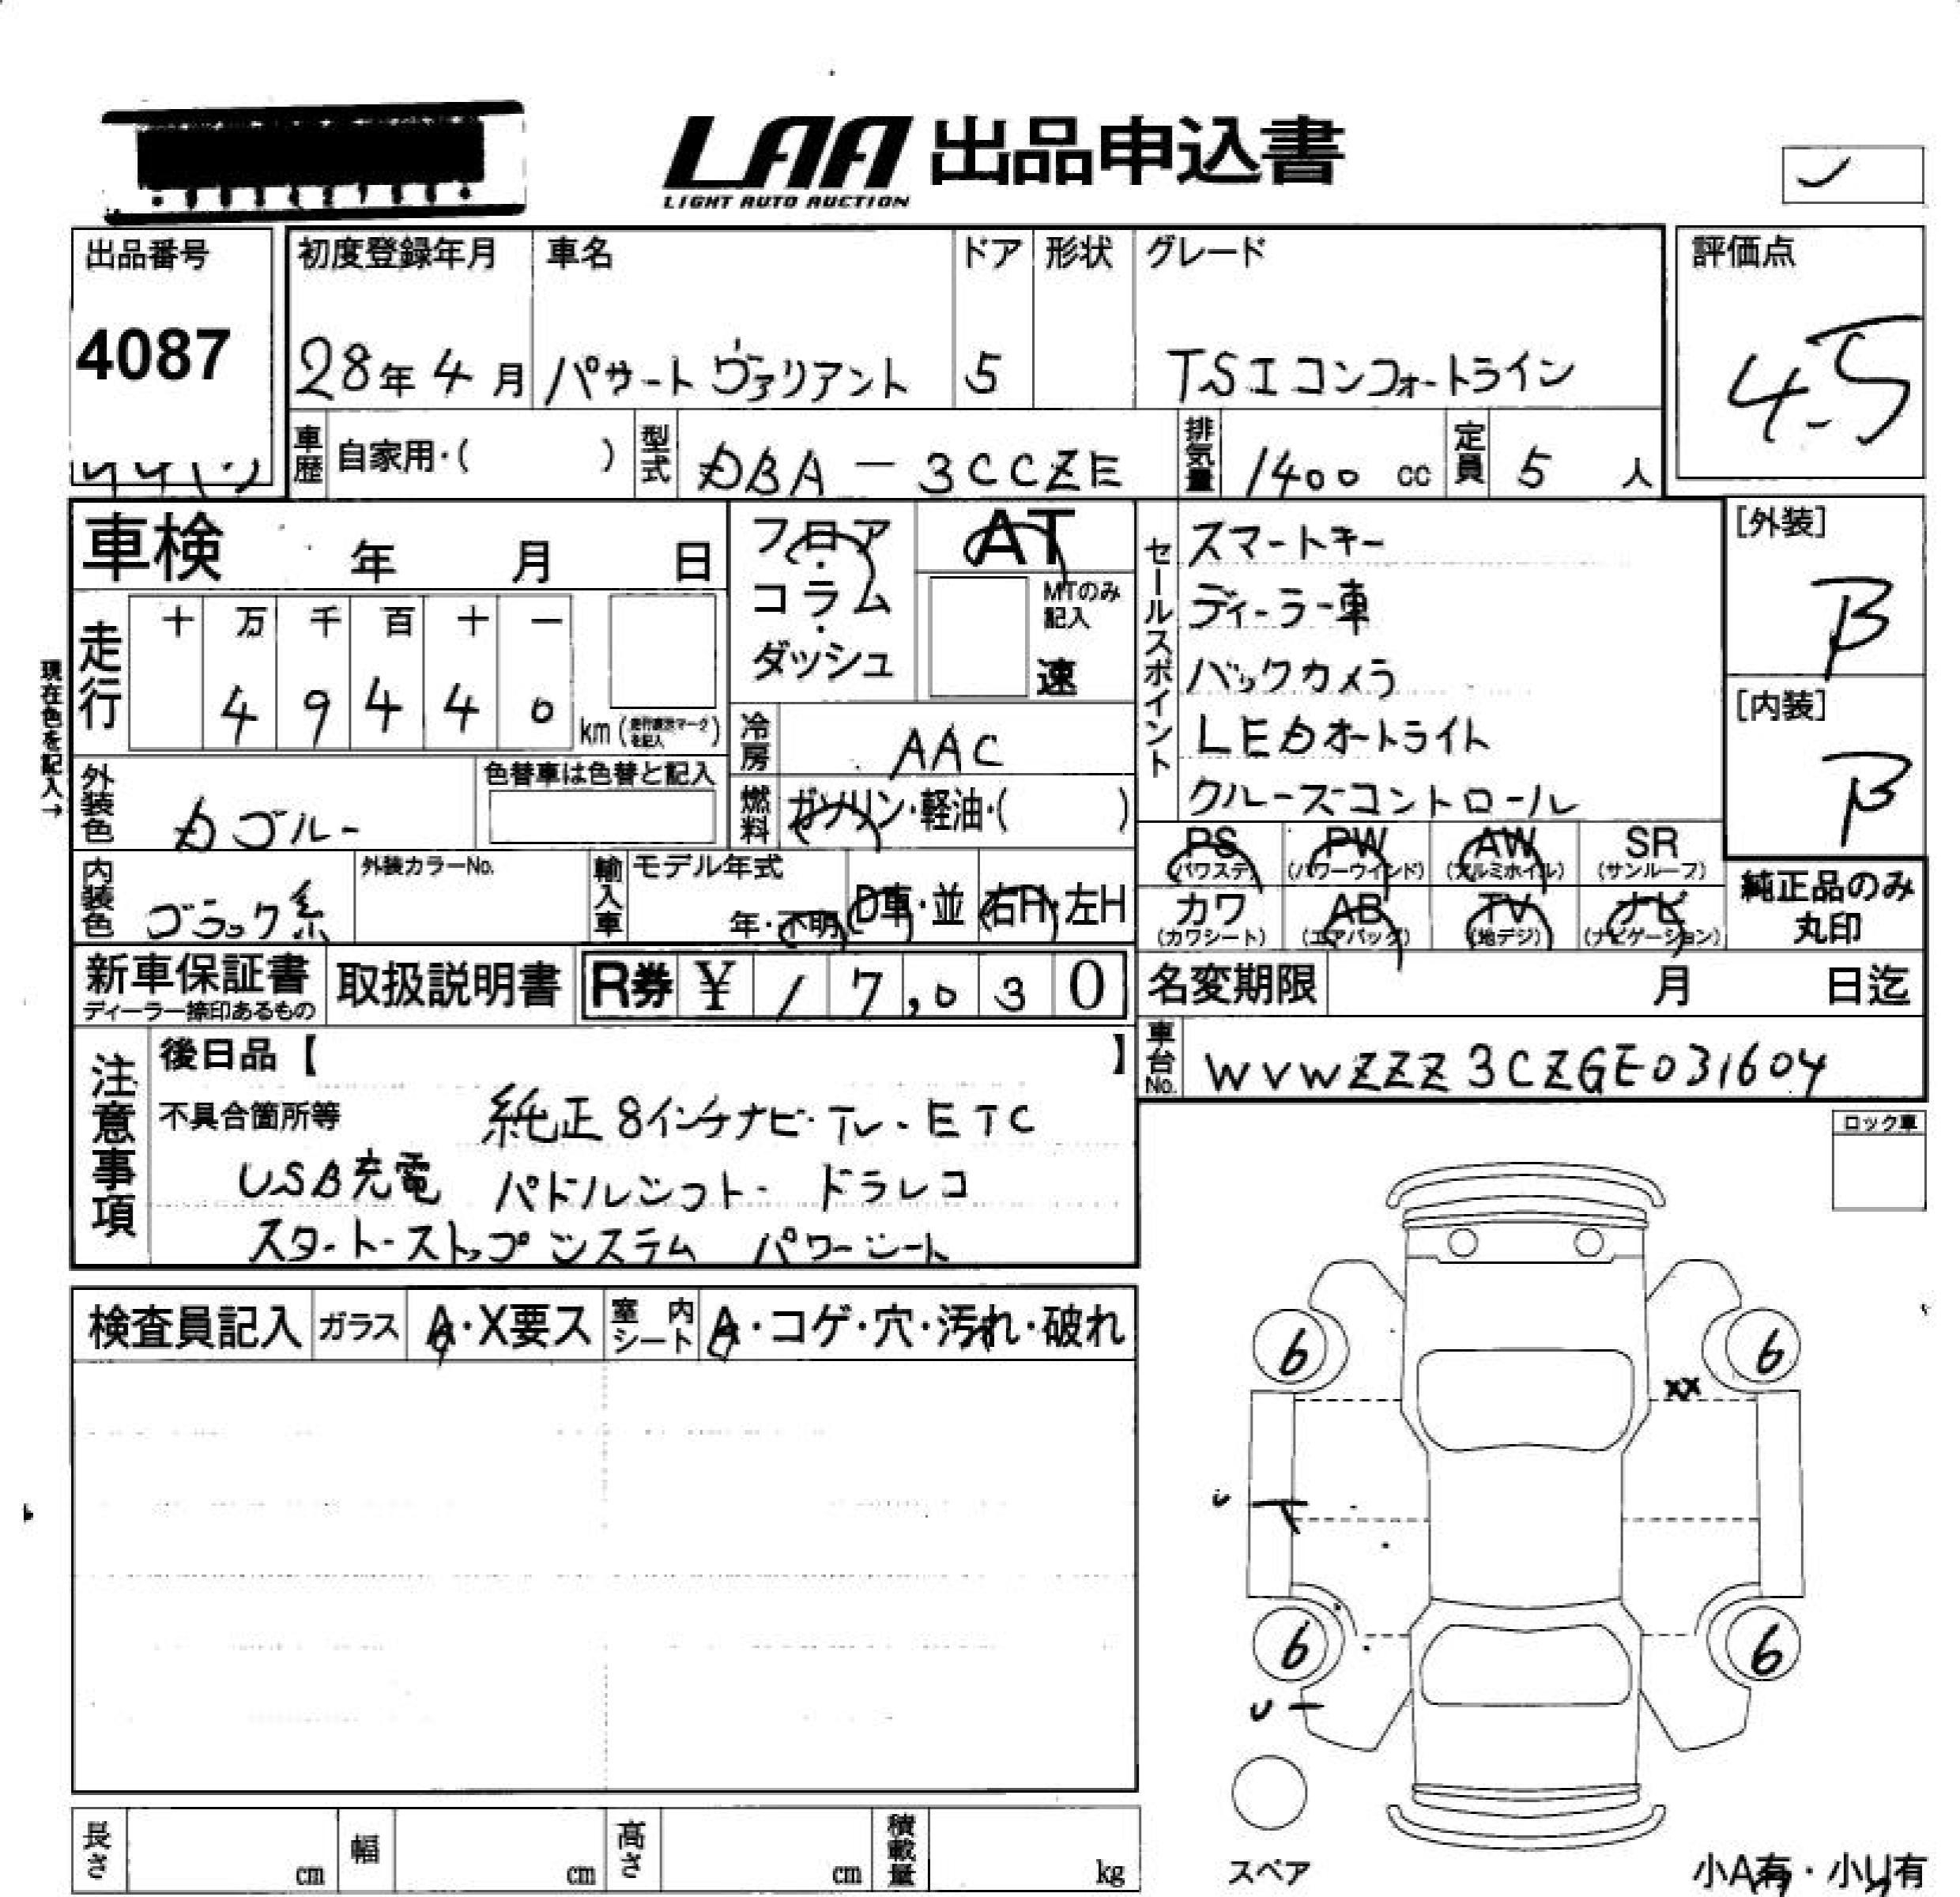 LAA 出品申込書
LIGHT AUTO AUCTION
出品番号
4087
初度登録年月 車名 ドア 形状 グレード
28年4月 パサートヴァリアント 5 TSIコンフォートライン
評価点
4.5
車歴 自家用・( ) 型式 DBA-3CCZE 排気量 1400 cc 定員 5 人
車検 年 月 日
走行 十 万 千 百 十 一
4 9 4 4 0 km
現在色を記入→
フロア・コラム・ダッシュ
AT
MTのみ記入
速
冷房 AAC
燃料 ガソリン・軽油・( )
外装色 Dブルー
色替車は色替と記入
内装色 ブラック系
外装カラーNo.
輸入車 モデル年式
年・不明 D車・並 右H・左H
セールスポイント
スマートキー
ディーラー車
バックカメラ
LEDオートライト
クルーズコントロール
[外装]
B
[内装]
B
PS (パワステ) PW (パワーウインド) AW (アルミホイル) SR (サンルーフ)
カワ (カワシート) AB (エアバッグ) TV (地デジ) ナビ (ナビゲーション)
純正品のみ丸印
新車保証書
ディーラー捺印あるもの
取扱説明書
R券 ¥ 17,030
名変期限 月 日迄
車台No. WVWZZZ3CZGE031604
注意事項
後日品【 】
不具合箇所等 純正8インチナビ・TV・ETC
USB充電 パドルシフト・ドラレコ
スタートストップシステム パワーシート
ロック車
検査員記入 ガラス A・X要ス 室内シート A・コゲ・穴・汚れ・破れ
6 6
XX
6 6
U
スペア
長さ cm 幅 cm 高さ cm 積載量 kg
小A有・小U有